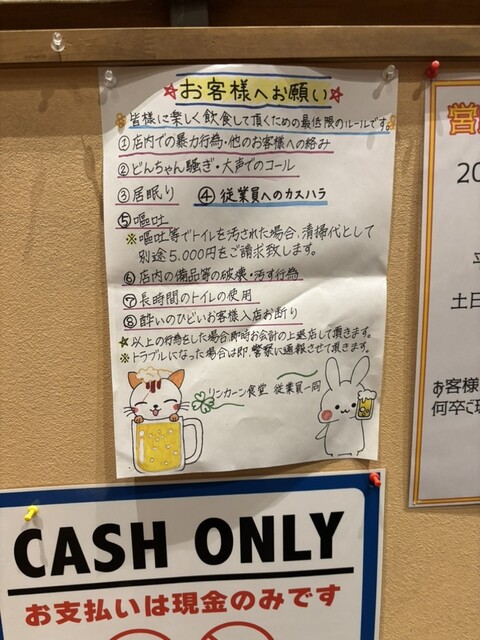 ☆お客様へお願い☆
皆様に楽しく飲食して頂くための最低限のルールです。
①店内での暴力行為・他のお客様への絡み
②どんちゃん騒ぎ・大声でのコール
③居眠り ④従業員へのカスハラ
⑤嘔吐
※嘔吐等でトイレを汚された場合、清掃代として
別途5,000円をご請求致します。
⑥店内の備品等の破壊・汚す行為
⑦長時間のトイレの使用
⑧酔いのひどいお客様入店お断り
☆以上の行為をした場合即時お会計の上退店して頂きます。
※トラブルになった場合は即、警察に通報させて頂きます。
リンカーン食堂 従業員一同
営
20
土日
お客様
何卒ご理
CASH ONLY
お支払いは現金のみです